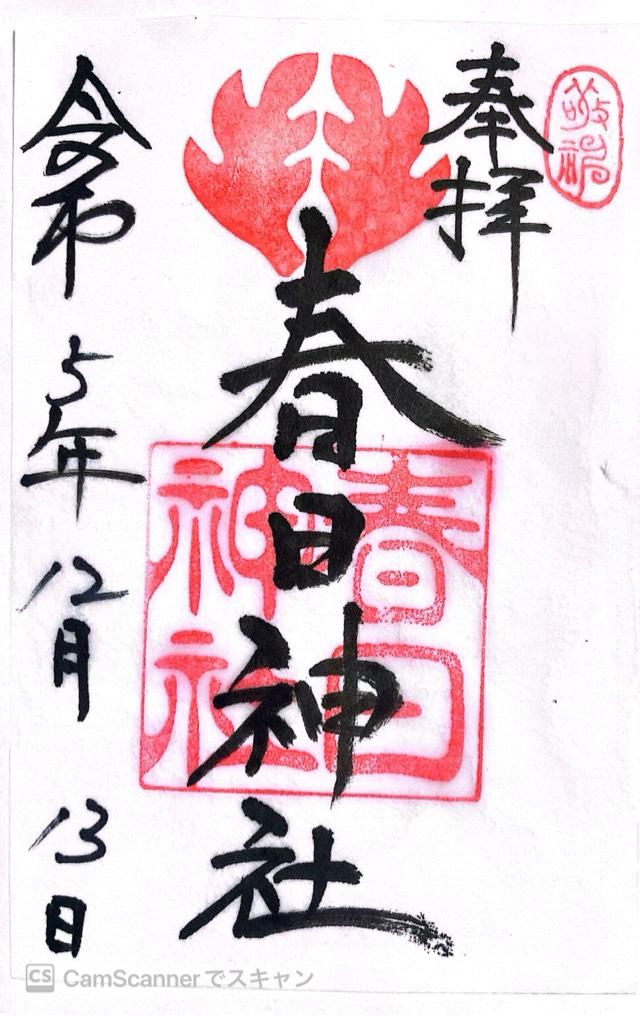 奉拝
春日神社
令和5年12月13日
春日
神社
CS CamScannerでスキャン